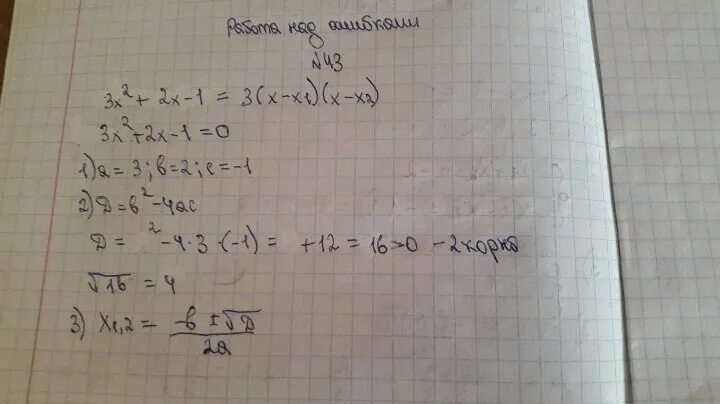 Работа над ошибками
№43
3x² + 2x - 1 = 3(x-x1)(x-x2)
3x² + 2x - 1 = 0
1) a = 3; b = 2; c = -1
2) D = b² - 4ac
D = ² - 4·3·(-1) = +12 = 16>0 - 2 корня
√16 = 4
3) x1,2 = (-b ± √D)/2a